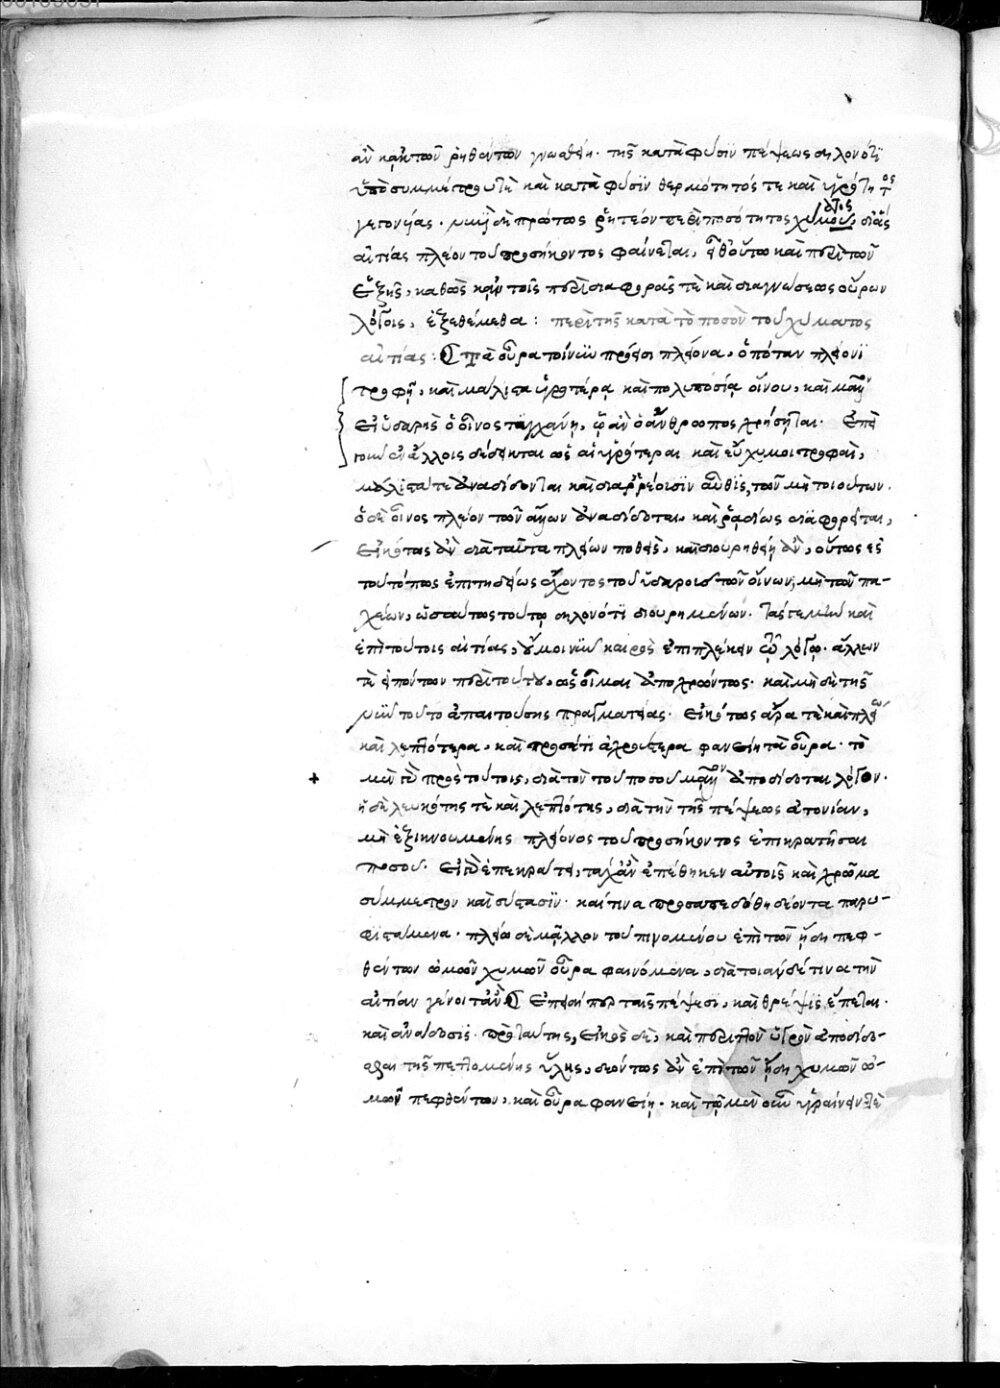 ἂν κἀκ τῶν ῥηθέντων γνωσθείη. τῆς κατὰ φύσιν πέψεως δηλονότι
ὑπὸ συμμέτρου τε καὶ κατὰ φύσιν θερμότητός τε καὶ ὑγρότητος
γειτονείας. νυνὶ δὲ πρώτως ῥητέον περὶ ποσότητος χύματος, δι' ἃς
αἰτίας πλέον τοῦ προσήκοντος φαίνεται, εἶθ' οὕτω καὶ περὶ τῶν
ἑξῆς, καθὼς κἀν τοῖς περὶ διαφορᾶς τὲ καὶ διαγνώσεως οὔρων
λόγοις, ἐξεθέμεθα: περὶ τῆς κατὰ τὸ ποσὸν τοῦ χύματος
αἰτίας: Τὰ οὖρα τοίνυν πρόεισι πλείονα, ὁπόταν πλείονι
τροφῇ, καὶ μάλιστα ὑγροτέρᾳ καὶ πολυποσίᾳ οἴνου, καὶ μᾶλλον
εἰ ὑδαρὴς ὁ οἶνος τυγχάνῃ, ᾧ ἂν ὁ ἄνθρωπος χρήσηται. Ἐπεὶ
τοίνυν ἐν ἄλλοις δέδεικται ὡς αἱ ὑγρότεραι καὶ εὔχυμοι τροφαὶ,
μάλιστά τε ἀναδίδονται καὶ διαρρέουσιν αὖθις, τῶν μὴ τοιούτων.
ὁ δὲ οἶνος πλεῖον τῶν ἄλλων ἀναδίδοται, καὶ ῥᾳδίως διαφορεῖται,
Εἰκότως ἂν διὰ ταῦτα πλείων ποθεὶς, καὶ διουρηθείη ἂν, οὕτως
τοῦ τόπως ἐπιτηδείως ἔχοντος τοῦ ὑδαροῦς τῶν οἴνων, μὴ τῶν πα-
χέων, ὡσαύτως τούτῳ δηλονότι διουρημένων. Τὰς τε μὲν καὶ
ἐπὶ τούτοις αἰτίας, οὔμοι νῦν καιρὸς ἐπιπλέκειν τῷ λόγῳ. ἄλλων
τε εἰπόντων περὶ τούτου, ὡς οἶμαι ἀποχρώντως. καὶ μὴ δὲ τῆς
νῦν τοῦτο ἀπαιτούσης πραγματείας. Εἰκότως ἄρα τὲ καὶ πλείω
καὶ λεπτότερα, καὶ προσέτι ἀχρούστερα φανείη τὰ οὖρα. τὸ
μὲν πρὸς τούτοις, διὰ τὸν τοῦ ποσοῦ μᾶλλον ἀποδίδοται λόγον.
ἡ δὲ λευκότης τὲ καὶ λεπτότης, διὰ τὴν τῆς πέψεως ἀτονίαν,
μὴ ἐξικνουμένης πλείονος τοῦ προσήκοντος ἐπικρατῆσαι
ποσοῦ. Εἰ δ' ἐπεκράτει, τάχ' ἂν ἐπέθηκεν αὐτοῖς καὶ χρῶμα
σύμμετρον καὶ σύστασιν. καί τινα προσαπεδόθη δέοντα παρυ-
φιστάμενα. πλείω δὲ μᾶλλον τοῦ πινομένου ἐπὶ τῶν ἤδη πεφ-
θέντων ὠμῶν χυμῶν οὖρα φαινόμενα, διὰ τοιάνδέ τινα τὴν
αἰτίαν γένοιτ' ἄν. Ἐπειδήπερ ταῖς πέψεσι, καὶ θρέψις ἕπεται.
καὶ ἀνάδοσις πρὸ ταύτης, εἰκὸς δὲ, καὶ περιττὸν ὑγρὸν ἀποδίδο-
σθαι τῆς πεττομένης ὕλης, δεόντως ἂν ἐπὶ τῶν ἤδη χυμῶν ὠ-
μῶν πεφθέντων, καὶ οὖρα φανείη. καὶ τῷ μὲν οὖν ὑγραίνειν τε